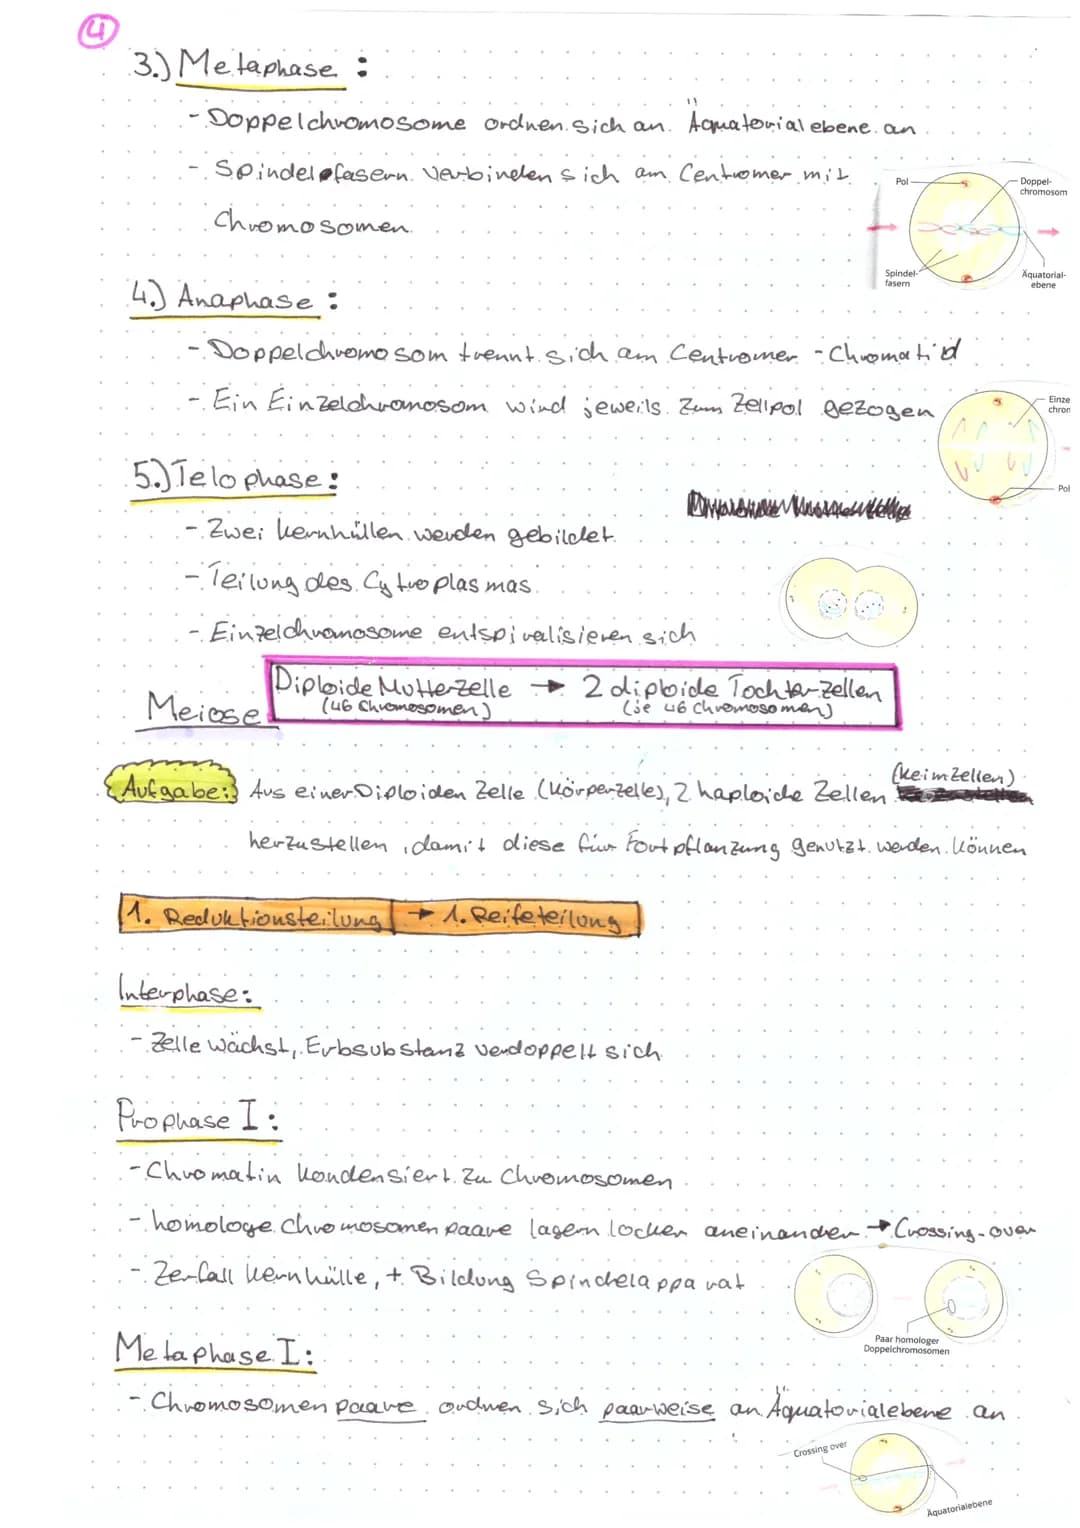 4
3.) Metaphase :
- Doppelchromosome ordnen sich an Äquatorialebene an
- Spindelfasern verbinden sich am Centromer mit
Chromosomen.
Pol
Doppel-
chromosom
Spindel-
fasern
Äquatorial-
ebene
4.) Anaphase :
- Doppelchromosom trennt sich am Centromer - Chromatid
- Ein Einzelchromosom wird jeweils zum Zellpol gezogen
Einze
chrom
Pol
5.) Telophase :
- Zwei Kernhüllen werden gebildet
- Teilung des Cytroplasmas
- Einzelchromosome entspiralisieren sich
Diploide Mutterzelle → 2 diploide Tochterzellen
(46 Chromosomen) (je 46 Chromosomen)
Meiose
(Keimzellen)
Aufgabe: Aus einer Diploiden Zelle (Körperzelle), 2 haploide Zellen
herzustellen, damit diese für Fortpflanzung genutzt werden können
1. Reduktionsteilung → 1. Reifeteilung
Interphase:
- Zelle wächst, Erbsubstanz verdoppelt sich
Prophase I :
- Chromatin kondensiert zu Chromosomen
- homologe Chromosomenpaare lagern locker aneinander → Crossing-over
- Zerfall Kernhülle, + Bildung Spindelapparat
Paar homologer
Doppelchromosomen
Metaphase I :
- Chromosomenpaare ordnen sich paarweise an Äquatorialebene an
Crossing over
Äquatorialebene